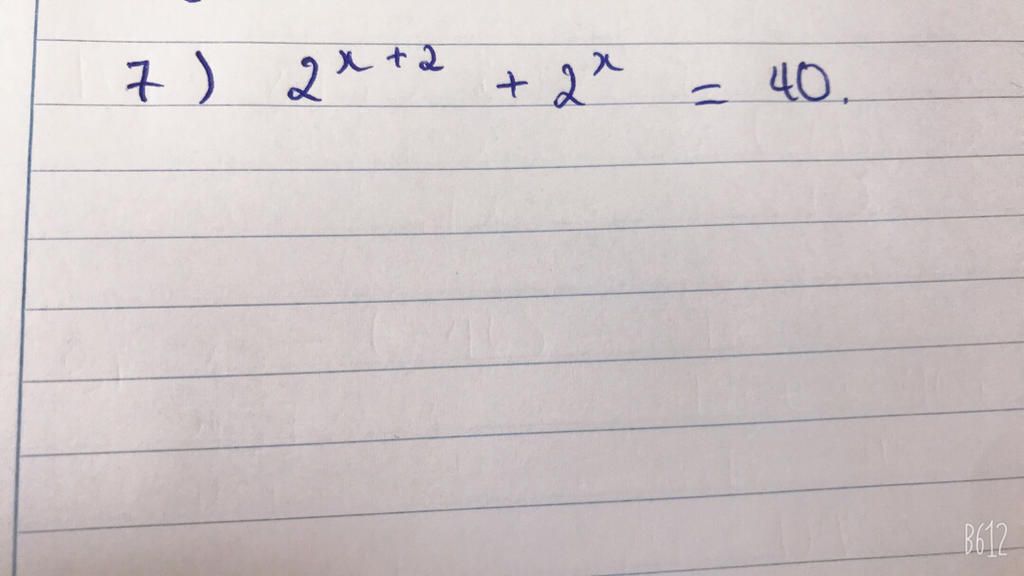 7) 2^{x+2} + 2^x = 40.
B612